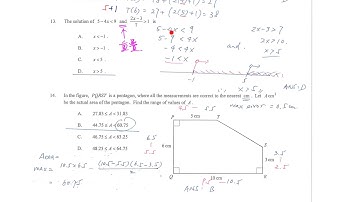 5+1
T(6) = 27 + (2(8)+1)(2) = 38
13. The solution of 5 – 4x < 9 and (2x – 3)/7 > 1 is
A. x > –1 .
B.
C. x < 5 .
D. x > 5 .
5 - 4x < 9
5 - 9 < 4x
-4 < 4x
-1 < x
and
2x - 3 > 7
2x > 10
x > 5
-1 5
x > 5
Ans: D
14. In the figure, PQRST is a pentagon, where all the measurements are correct to the nearest cm. Let A cm² be the actual area of the pentagon. Find the range of values of A .
A. 27.83 ≤ A < 51.83
B. 44.75 ≤ A < 60.75
C. 46.75 ≤ A < 63.25
D. 48.25 ≤ A < 64.75
4.5 – 5.5
max error = 0.5 cm
P 5 cm T
6.5
5.5
6 cm
S
3 cm
3.5
2.5
Q 10 cm R
9.5 – 10.5
Area
max = 10.5×6.5 - (10.5-5.5)(6.5-3.5)/2
= 60.75
Ans: B